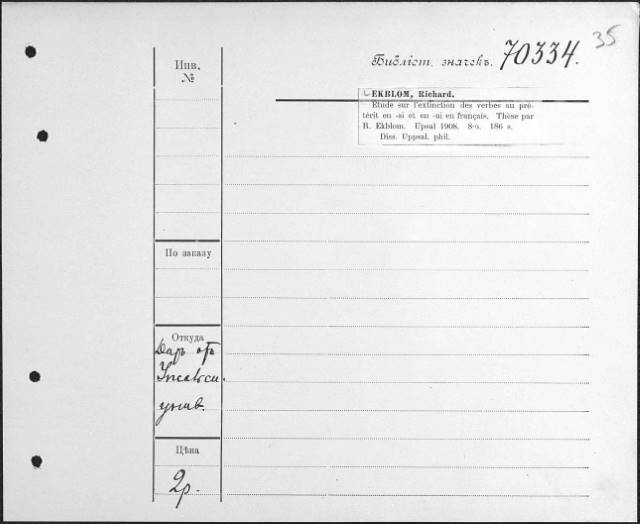 35
Библіот. значекъ. 70334.
Инв.
№
EKBLOM, Richard.
Étude sur l'extinction des verbes au pré-
térit en -si et en -ui en français. Thèse par
R. Ekblom. Upsal 1908. 8-o. 186 s.
Diss. Uppsal. phil.
По заказу
Откуда
Даръ отъ
унив.
Цѣна
2р.